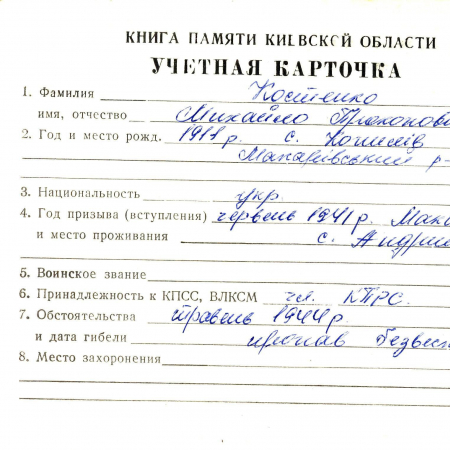 КНИГА ПАМЯТИ КИЕВСКОЙ ОБЛАСТИ
УЧЕТНАЯ КАРТОЧКА
1. Фамилия Костенко
имя, отчество Михайло Прокопов
2. Год и место рожд. 1911 р. с.
Макарівський р-
3. Национальность укр.
4. Год призыва (вступления) червень 1941 р. Мак
и место проживания с. Андріє
5. Воинское звание
6. Принадлежность к КПСС, ВЛКСМ чл. КПРС.
7. Обстоятельства травень 1944 р
и дата гибели пропав безвіс
8. Место захоронения